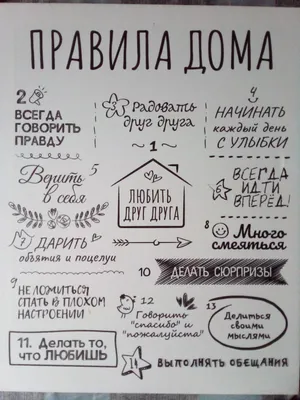 ПРАВИЛА ДОМА
2
ВСЕГДА
ГОВОРИТЬ
ПРАВДУ
3
Радовать
друг друга
4
НАЧИНАТЬ
каждый день
С УЛЫБКИ
1
ЛЮБИТЬ
ДРУГ ДРУГА
5
Верить
в себя
6
ВСЕГДА
ИДТИ
ВПЕРЁД!
7
ДАРИТЬ
объятия и поцелуи
8
Много
смеяться
9
НЕ ЛОЖИТЬСЯ
СПАТЬ В ПЛОХОМ
НАСТРОЕНИИ
10 ДЕЛАТЬ СЮРПРИЗЫ
11. Делать то,
что ЛЮБИШЬ
12
Говорить
"спасибо" и
"пожалуйста"
13
Делиться
своими
мыслями
14 ВЫПОЛНЯТЬ ОБЕЩАНИЯ